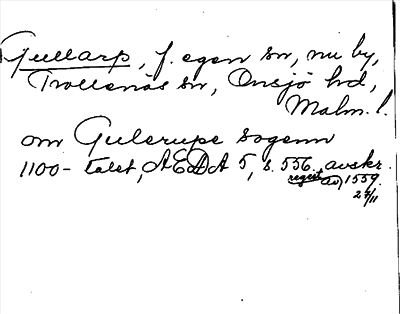 Gullarp, f. egen sn, nu by,
Trollenäs sn, Onsjö hd,
Malm. l.
om Gulerupe sogenn
1100-talet, AEDA 5, s. 556. avskr.
regest av 1559
27/11